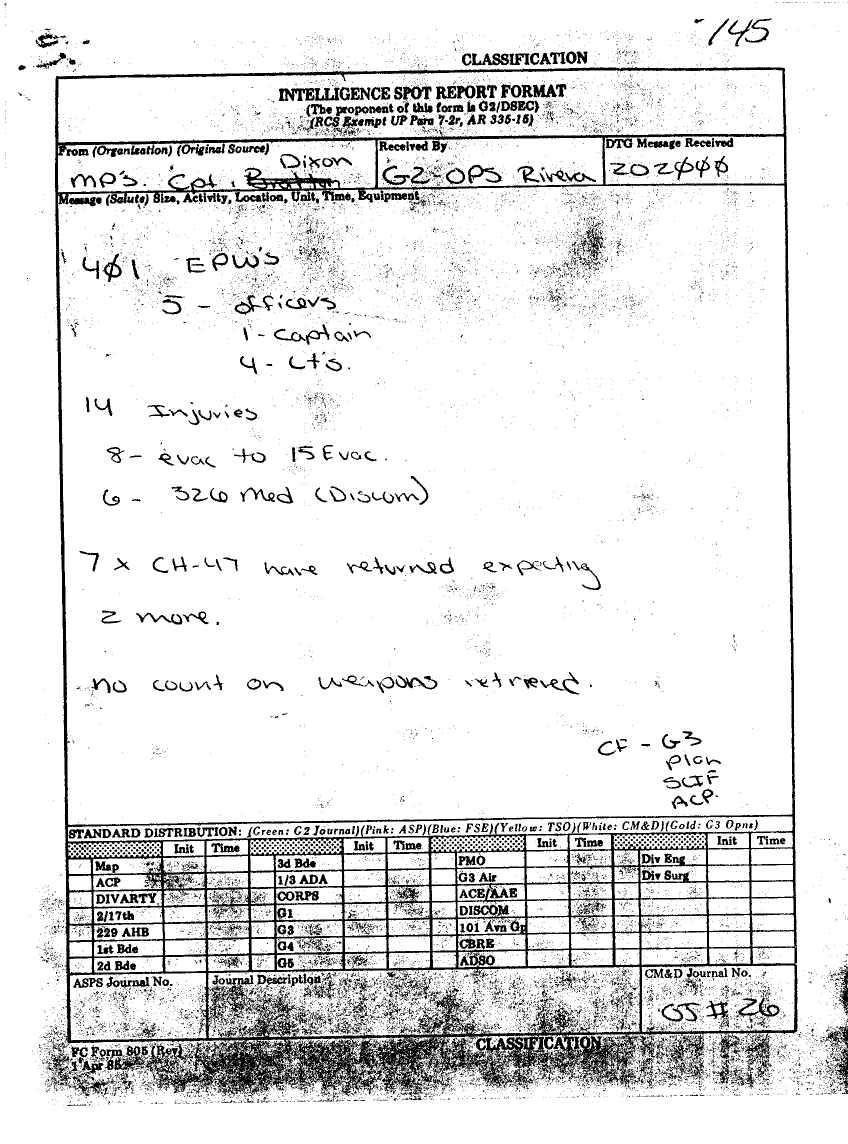 145
CLASSIFICATION
INTELLIGENCE SPOT REPORT FORMAT
(The proponent of this form is G2/DSEC)
(RCS Exempt UP Para 7-2r, AR 335-15)
From (Organization) (Original Source)
Received By
DTG Message Received
Dixon
MP's. Cpt.
G2-OPS Rivera
202000
Message (Salute) Size, Activity, Location, Unit, Time, Equipment
401 EPW's
5 - officers
1 - Captain
4 - Lt's.
14 Injuries
8 - evac to 15 Evac.
6 - 326 Med (Discom)
7 x CH-47 have returned expecting
2 more.
no count on weapons retrieved.
CF - G3
Plan
SCIF
ACP.
STANDARD DISTRIBUTION: (Green: G2 Journal)(Pink: ASP)(Blue: FSE)(Yellow: TSO)(White: CM&D)(Gold: G3 Opns)
Init Time Init Time Init Time Init Time
Map 3d Bde PMO Div Eng
ACP 1/3 ADA G3 Air Div Surg
DIVARTY CORPS ACE/AAE
2/17th G1 DISCOM
229 AHB G3 101 Avn Gp
1st Bde G4 CBRE
2d Bde G5 ADSO
ASPS Journal No. Journal Description CM&D Journal No.
GJ # 26
FC Form 805 (Rev)
CLASSIFICATION
1 Apr 85